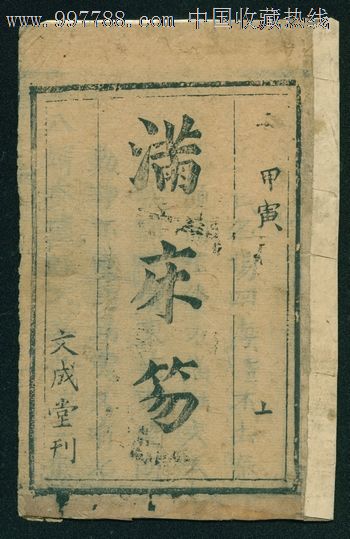 www.997788.com 中国收藏热线
甲寅
上
滿床笏
文成堂刊